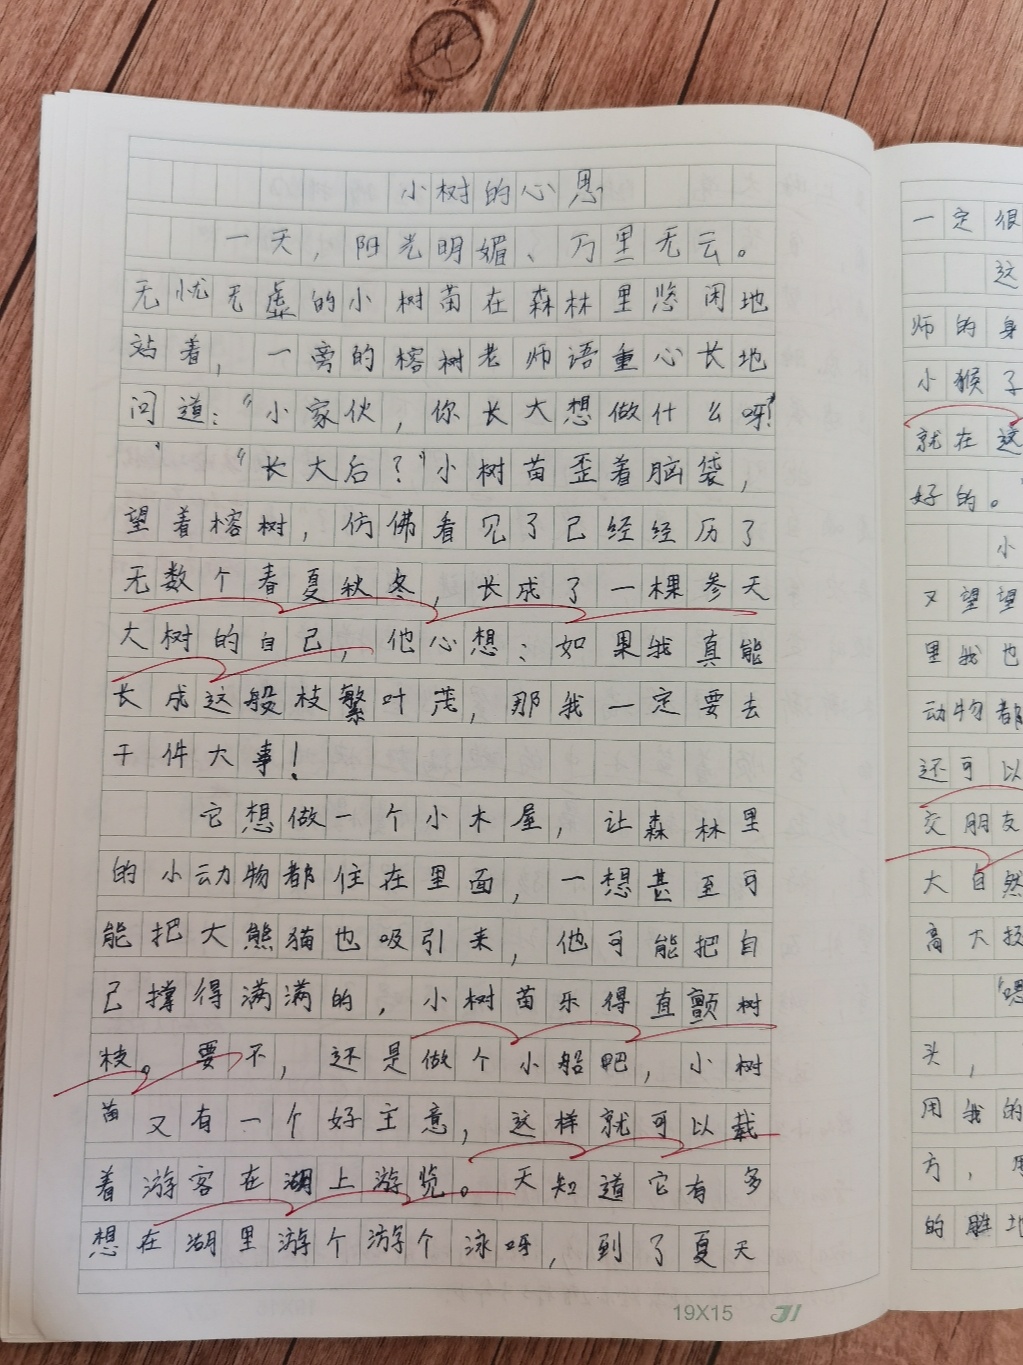 小树的心思
一天，阳光明媚、万里无云。
无忧无虑的小树苗在森林里悠闲地
站着，一旁的榕树老师语重心长地
问道：“小家伙，你长大想做什么呀？”
“长大后？”小树苗歪着脑袋，
望着榕树，仿佛看见了已经经历了
无数个春夏秋冬，长成了一棵参天
大树的自己，他心想：如果我真能
长成这般枝繁叶茂，那我一定要去
干件大事！
它想做一个小木屋，让森林里
的小动物都住在里面，一想甚至可
能把大熊猫也吸引来，他可能把自
己撑得满满的，小树苗乐得直颤树
枝。要不，还是做个小船吧，小树
苗又有一个好主意，这样就可以载
着游客在湖上游览。天知道它有多
想在湖里游个游个泳呀，到了夏天
19X15
一定很
这
师的身
小猴子
就在这
好的。
小
又望望
里我也
动物都
还可以
交朋友
大自然
高大挺
“嗯
头，
用我的
方，
的胜地